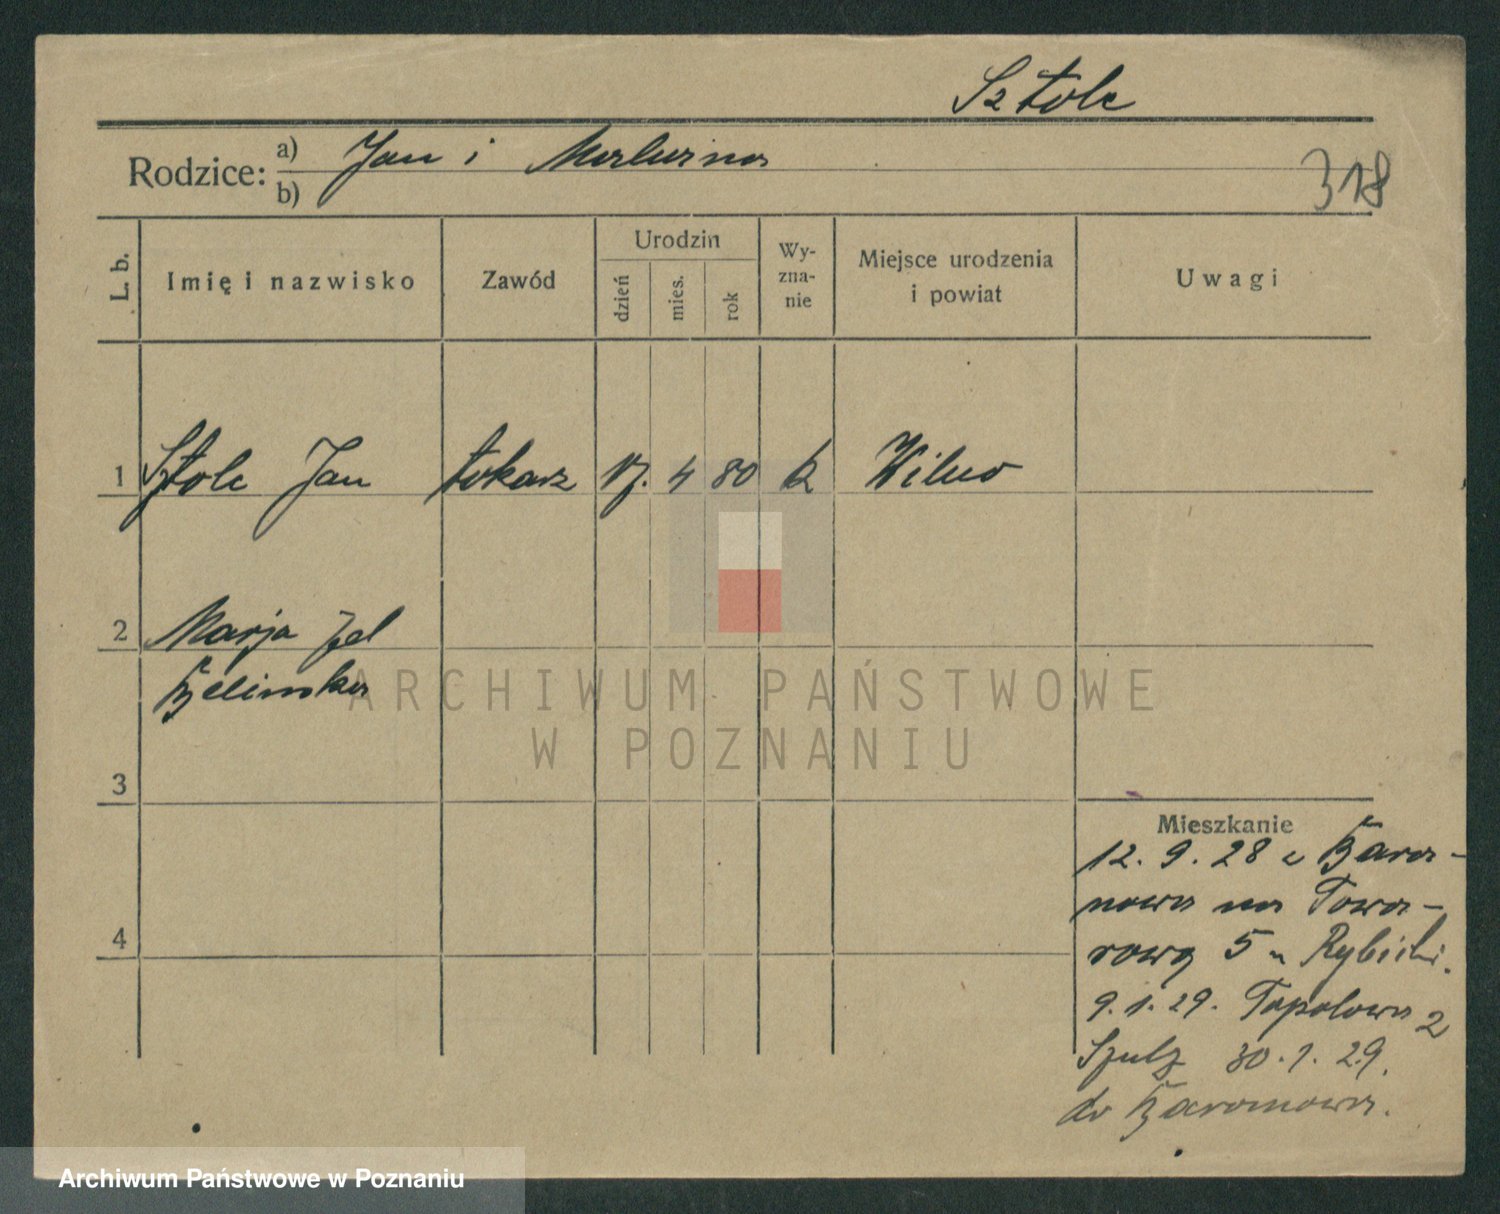 Sztolc
Rodzice: a) Jan i
b)
318
L. b. Imię i nazwisko Zawód Urodzin dzień mies. rok Wy-zna-nie Miejsce urodzenia i powiat Uwagi
1 Sztolc Jan tokarz 17. 4 80 k Wilno
2 Marja
3
Mieszkanie
12. 9. 28 z Bara-
nowa na Towa-
4
rową 5 u Rybicki.
9. 1. 29. Topolowa 2
Szulz 30. 1. 29.
do Baranowa.
ARCHIWUM PAŃSTWOWE
W POZNANIU
Archiwum Państwowe w Poznaniu